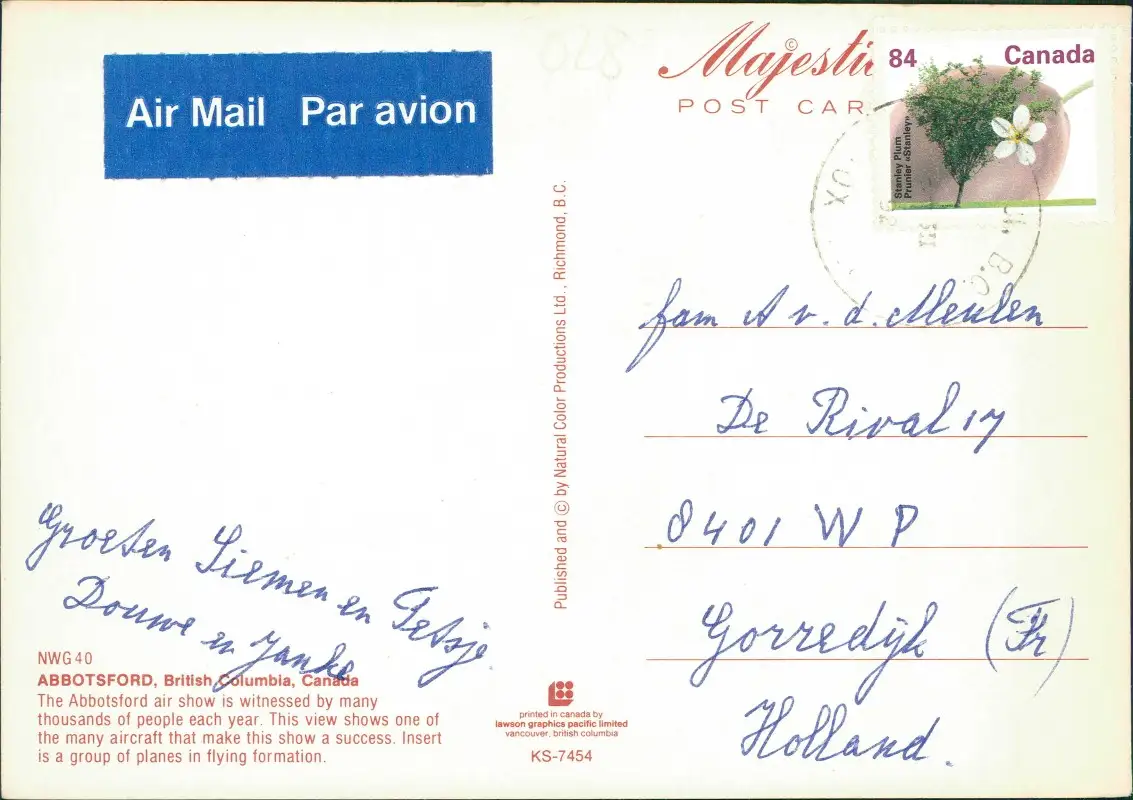 Air Mail Par avion
Majestic
POST CAR
84 Canada
Stanley Plum
Prunier «Stanley»
B.C.
fam A v. d. Meulen
De Rival 17
8401 WP
Gorredijk (Fr)
Holland.
Groeten Siemen en Tetsje.
Douwe en Janke
Published and © by Natural Color Productions Ltd., Richmond, B.C.
NWG 40
ABBOTSFORD, British Columbia, Canada
The Abbotsford air show is witnessed by many
thousands of people each year. This view shows one of
the many aircraft that make this show a success. Insert
is a group of planes in flying formation.
printed in canada by
lawson graphics pacific limited
vancouver, british columbia
KS-7454